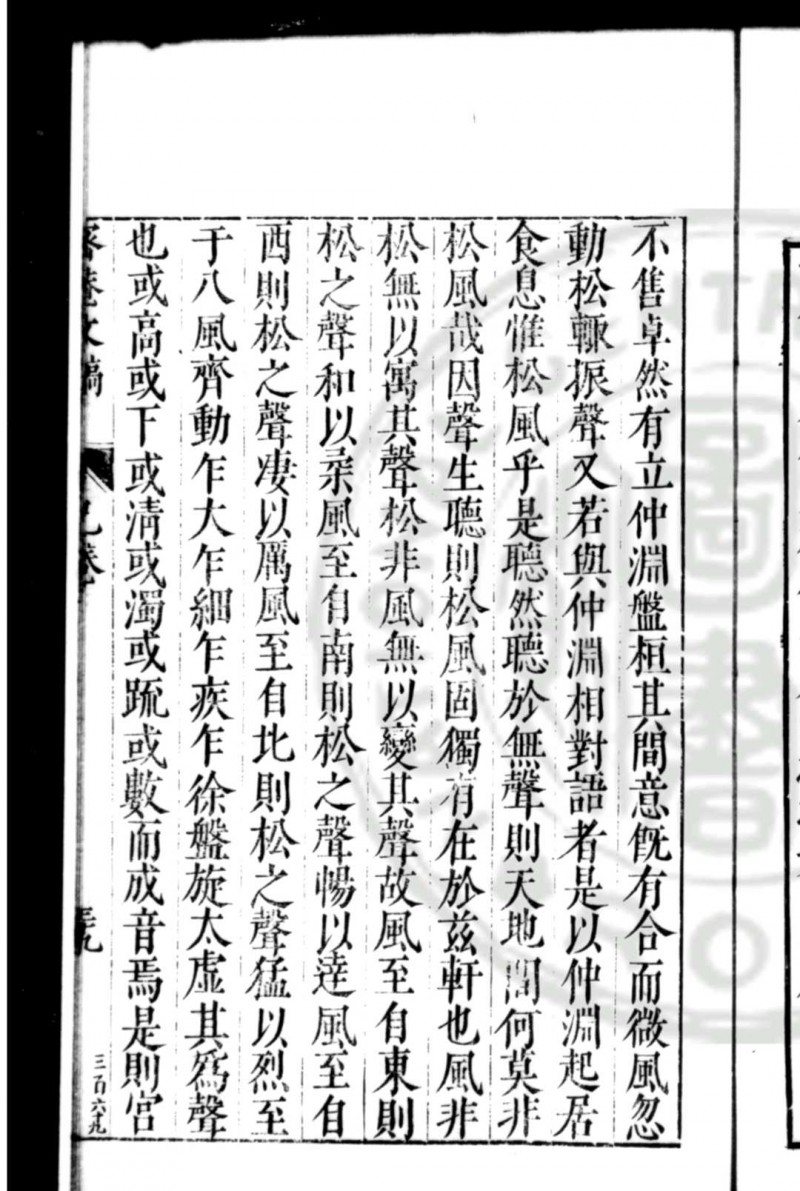 不售卓然有立仲淵盤桓其間意旣有合而微風忽
動松輙振聲又若與仲淵相對語者是以仲淵起居
食息惟松風乎是聽然聽於無聲則天地間何莫非
松風哉因聲生聽則松風固獨有在於兹軒也風非
松無以寓其聲松非風無以變其聲故風至自東則
松之聲和以柔風至自南則松之聲暢以達風至自
西則松之聲凄以厲風至自北則松之聲猛以烈至
于八風齊動乍大乍細乍疾乍徐盤旋太虛其爲聲
也或高或下或清或濁或䟽或數而成音焉是則宫
文稿
三百六九